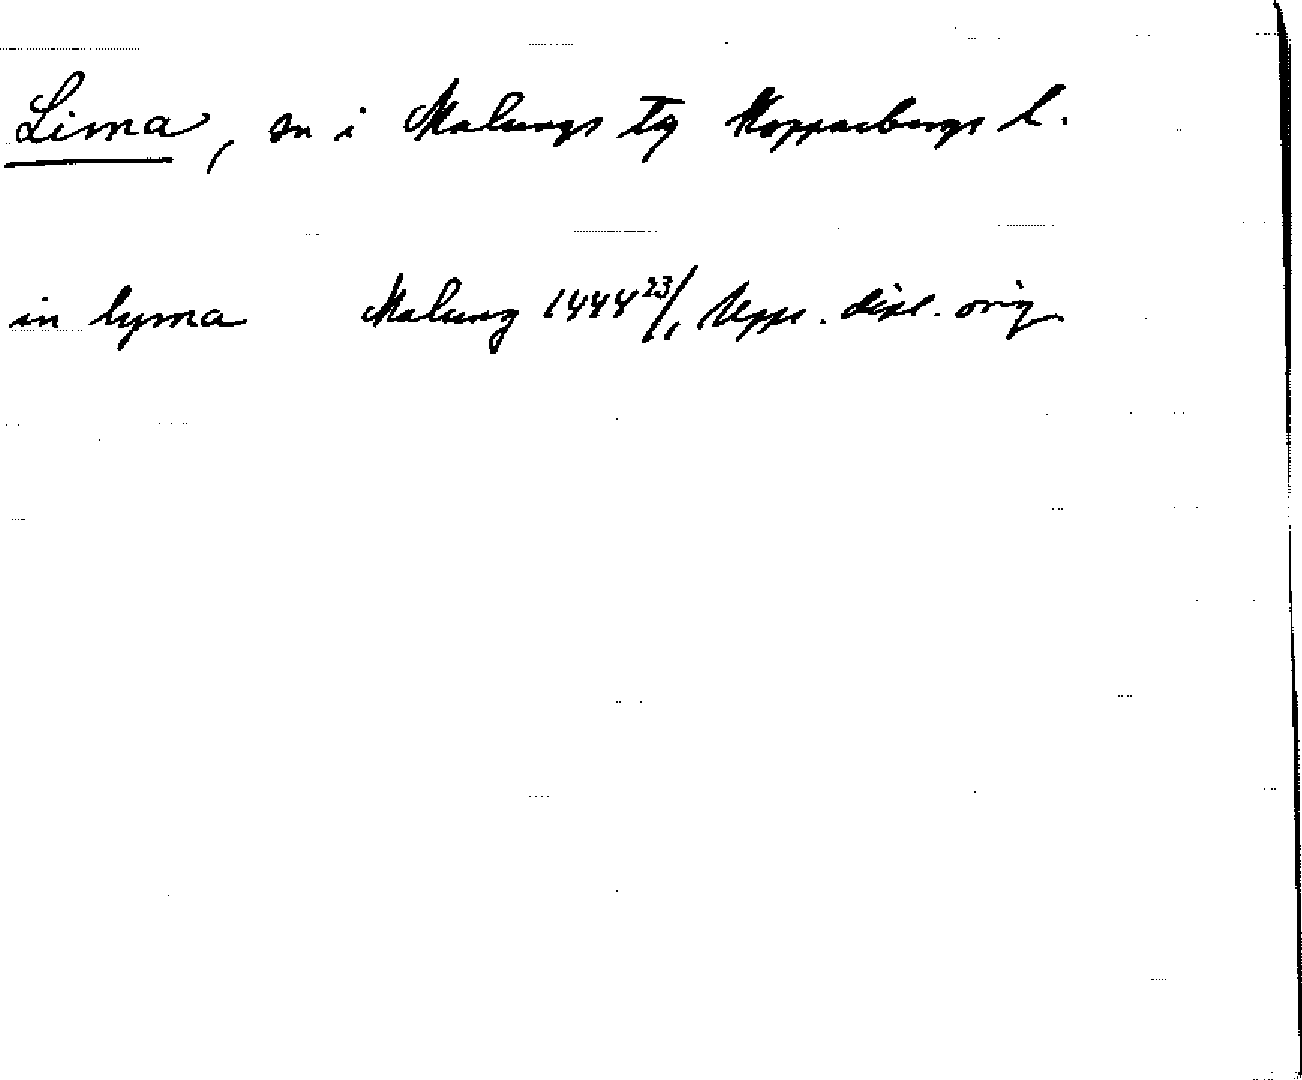 Lima, sn i Malungs tg Kopparbergs l.
in lyma Malung 1444 23/1 Upps. dipl. orig